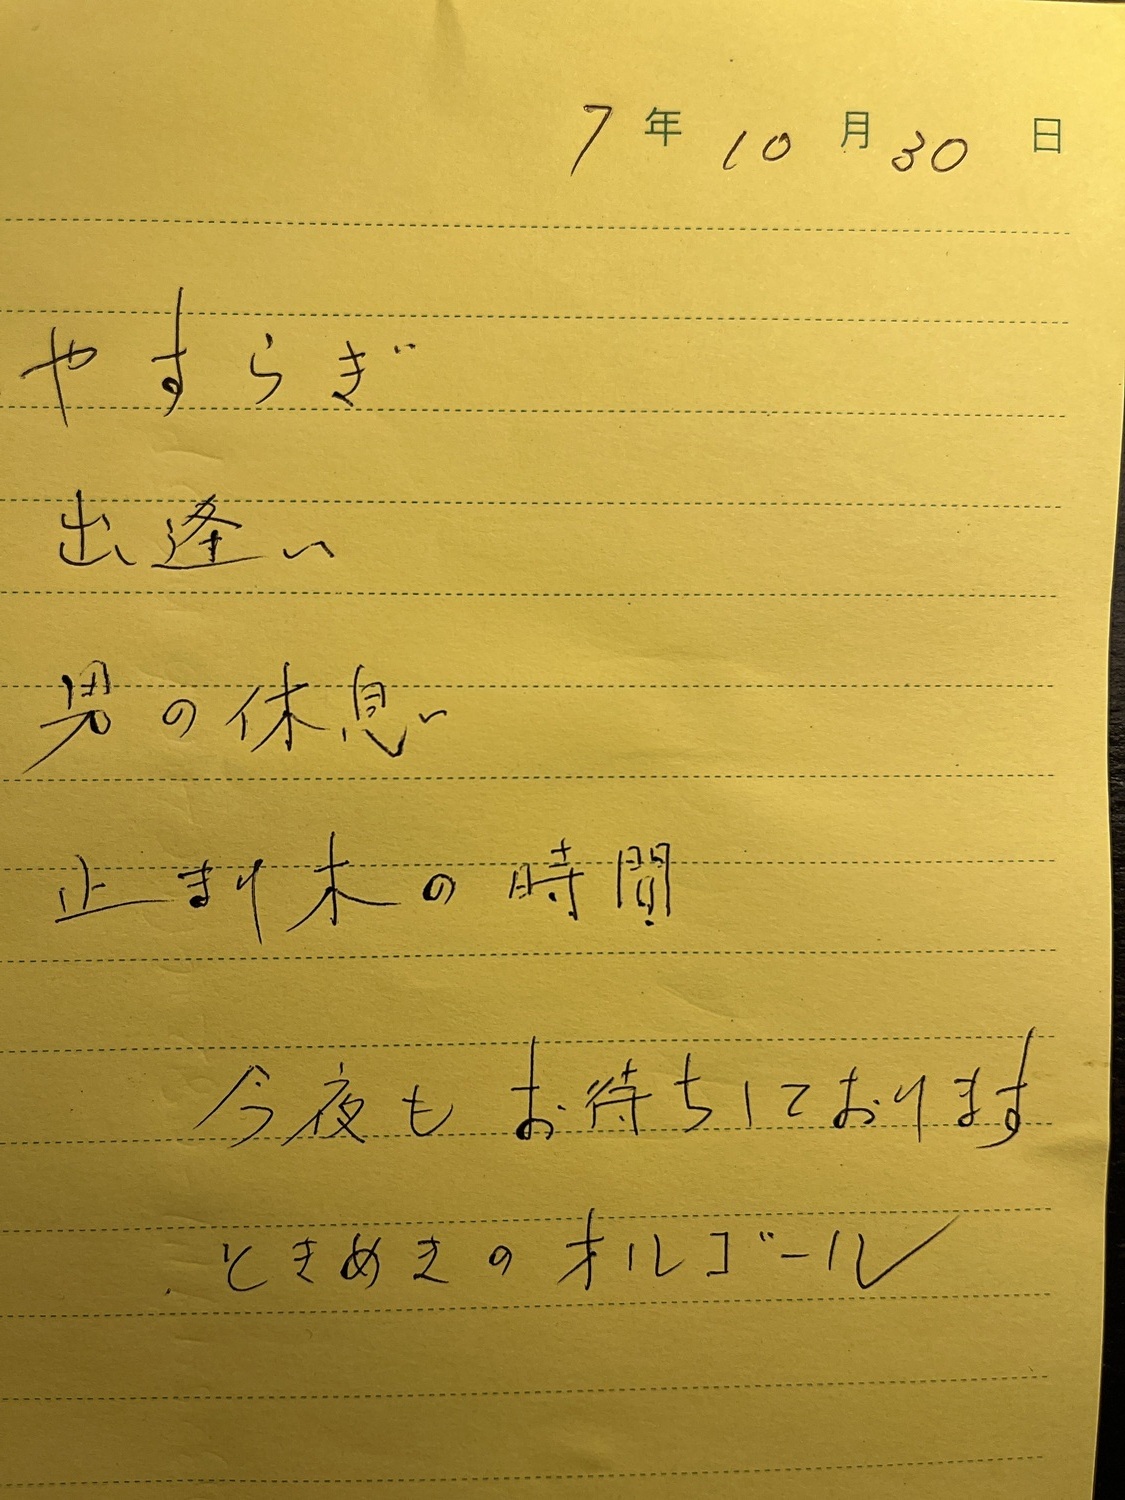 7年10月30日
やすらぎ
出逢い
男の休息い
止まり木の時間
今夜もお待ちしております
ときめきのオルゴール